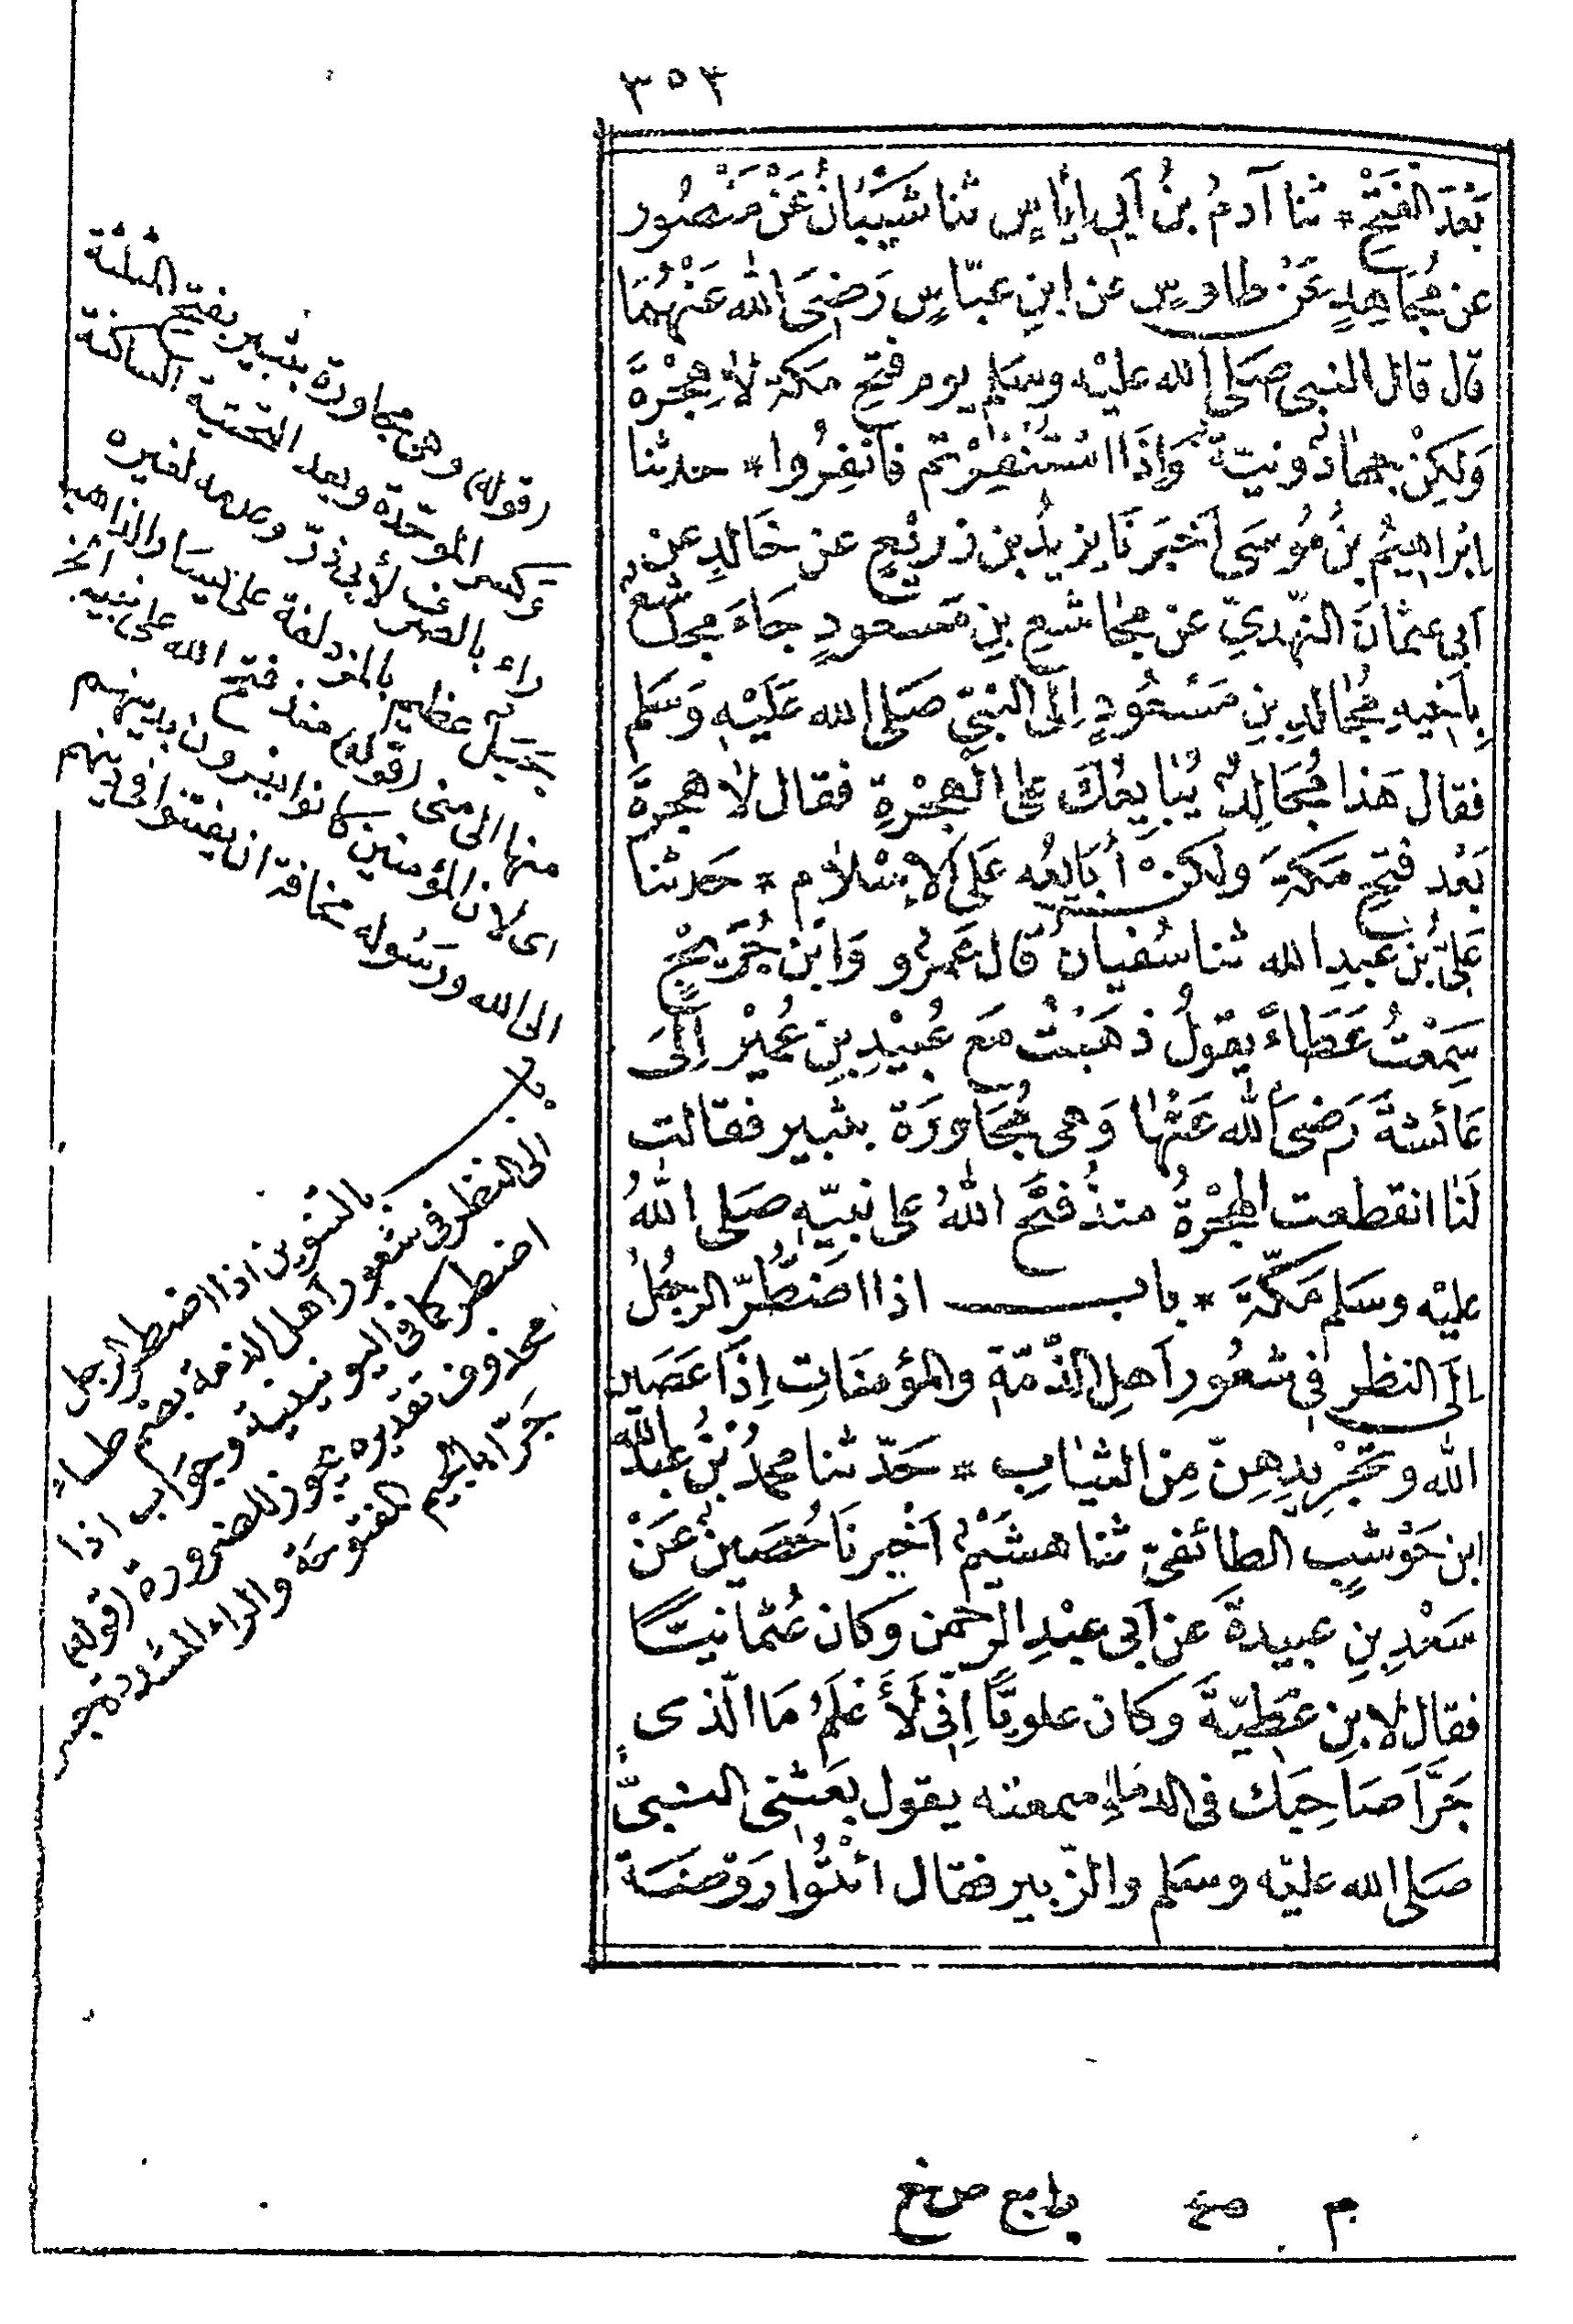 ٣٥٣
بَعْدَ الفَتْحِ * ثنا آدمُ بنُ اَبِي اياسٍ ثنا شَيْبَانُ عَنْ مَنْصُور
عن مُجَاهِدٍ عَنْ طاوسٍ عن ابنِ عبّاسٍ رَضِيَ الله عَنْهُمَا
قال قال النبي صَلى الله عليْه وسَلم يوم فتح مكة لاَ هِجْرَةَ
وَلكِنْ جهادٌ ونيّةٌ وَإِذَا اسْتُنْفِرْتم فَانْفِرُوا * حدثنا
اِبْراهِيمُ بنُ مُوسَى اَخْبَرَنَا يزيدُ بن زريْعٍ عن خَالدٍ عن
اَبي عثمانَ النّهْديّ عن مجاشعِ بنِ مَسعودٍ جَاءَ مجاشعٌ
بِاَخيهِ مُجَالدِ بنِ مَسْعُودٍ اِلَى النّبيّ صَلى الله عَلَيْهِ وَسَلم
فقال هَذا مُجَالِدٌ يُبَايعُكَ على الْهِجْرَةِ فقال لاَ هجرةَ
بَعْد فتحِ مَكةَ ولكنْ أُبَايِعُه عَلى الاِسْلاَم * حَدثنا
عَلِيّ بن عبدِ الله ثنا سُفيانُ قال عَمرٌو وَابْن جُرَيْجٍ
سَمِعْتُ عَطاءً يقولُ ذهَبْتُ مَع عُبَيْدِ بنِ عُمَيْرٍ اِلَى
عَائشةَ رَضيَ الله عَنْها وَهي مُجَاورَة بثبير فقالت
لَنَا انقطعت الهِجْرَةُ منذُ فتَحَ اللهُ على نبيّهِ صَلى اللهُ
عليْه وسَلم مَكّةَ * باب اذا اضْطُرّ الرجُلُ
اِلَى النظرِ في شعُورِ اَهلِ الذّمّة والمؤمنَاتِ اِذَا عَصَين
الله وتَجْرِيدِهِنّ مِن الثيَابِ * حَدّثنا محمدُ بنُ عبدِ الله
ابن حَوْشبٍ الطائفيّ ثنا هشَيْمٌ اَخْبرنَا حُصَينٌ عَنْ
سَعْدِ بنِ عبيدةَ عن اَبي عبْدِ الرّحْمن وَكان عُثمانيًّا
فقال لابنِ عَطِيّةَ وَكان علويًّا اِنّي لَأَعْلَمُ مَا الّذى
جَرَّأَ صَاحِبَك في الدماءِ سمعته يقول بَعثنِى النبيُّ
صَلى الله عليْه وسَلم والزّبير فقال ائتُوا رَوْضَة
(قوله) وهي مجاورة بثبير بفتح المثلثة
وَكسر الموحّدة وبعد التحتية الساكنة
راء بالصرف لأبي ذرّ وعدمه لغيره
جَبَل عظيم بالمزدلفة على يسار الذاهب
منها الى منى (قوله) منذ فتح الله على نبيه الخ
اى لان المؤمنين كانوا يفرون بدينهم
الى الله ورسُوله مخافة ان يفتنوا في دينهم
باب بالتنوين اذا اضطر الرجل
الى النظر في شعور اَهل الذمة بضم طاء
اضطر كما في اليونينية وجوَاب اذا
محذوف تقديره يجوز للضرورة (قوله)
جَرّأ بالجيم المفتوحة والراء المشددة